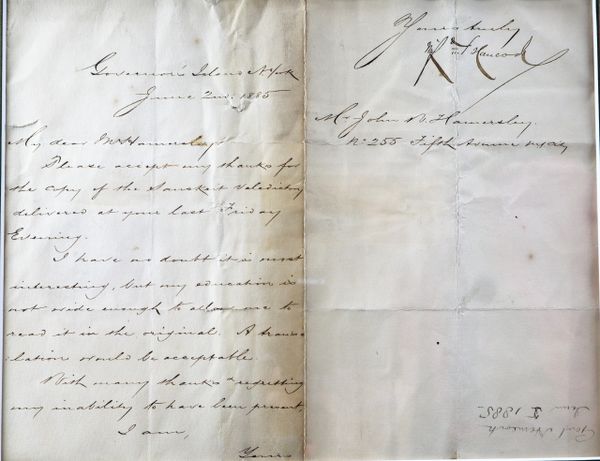 Governor's Island N.York
June 2nd. 1885
My dear Mr Hamersley,
Please accept my thanks for
the copy of the Sanskrit Valedictory
delivered at your last Friday
Evening.
I have no doubt it is most
interesting, but my education is
not wide enough to allow me to
read it in the original. A trans-
lation would be acceptable.
With many thanks & regretting
my inability to have been present,
I am,
Yours
Yours truly
Winf'd S Hancock
Mr John W. Hamersley.
No 255 Fifth Avenue
Genl Hancock
1885